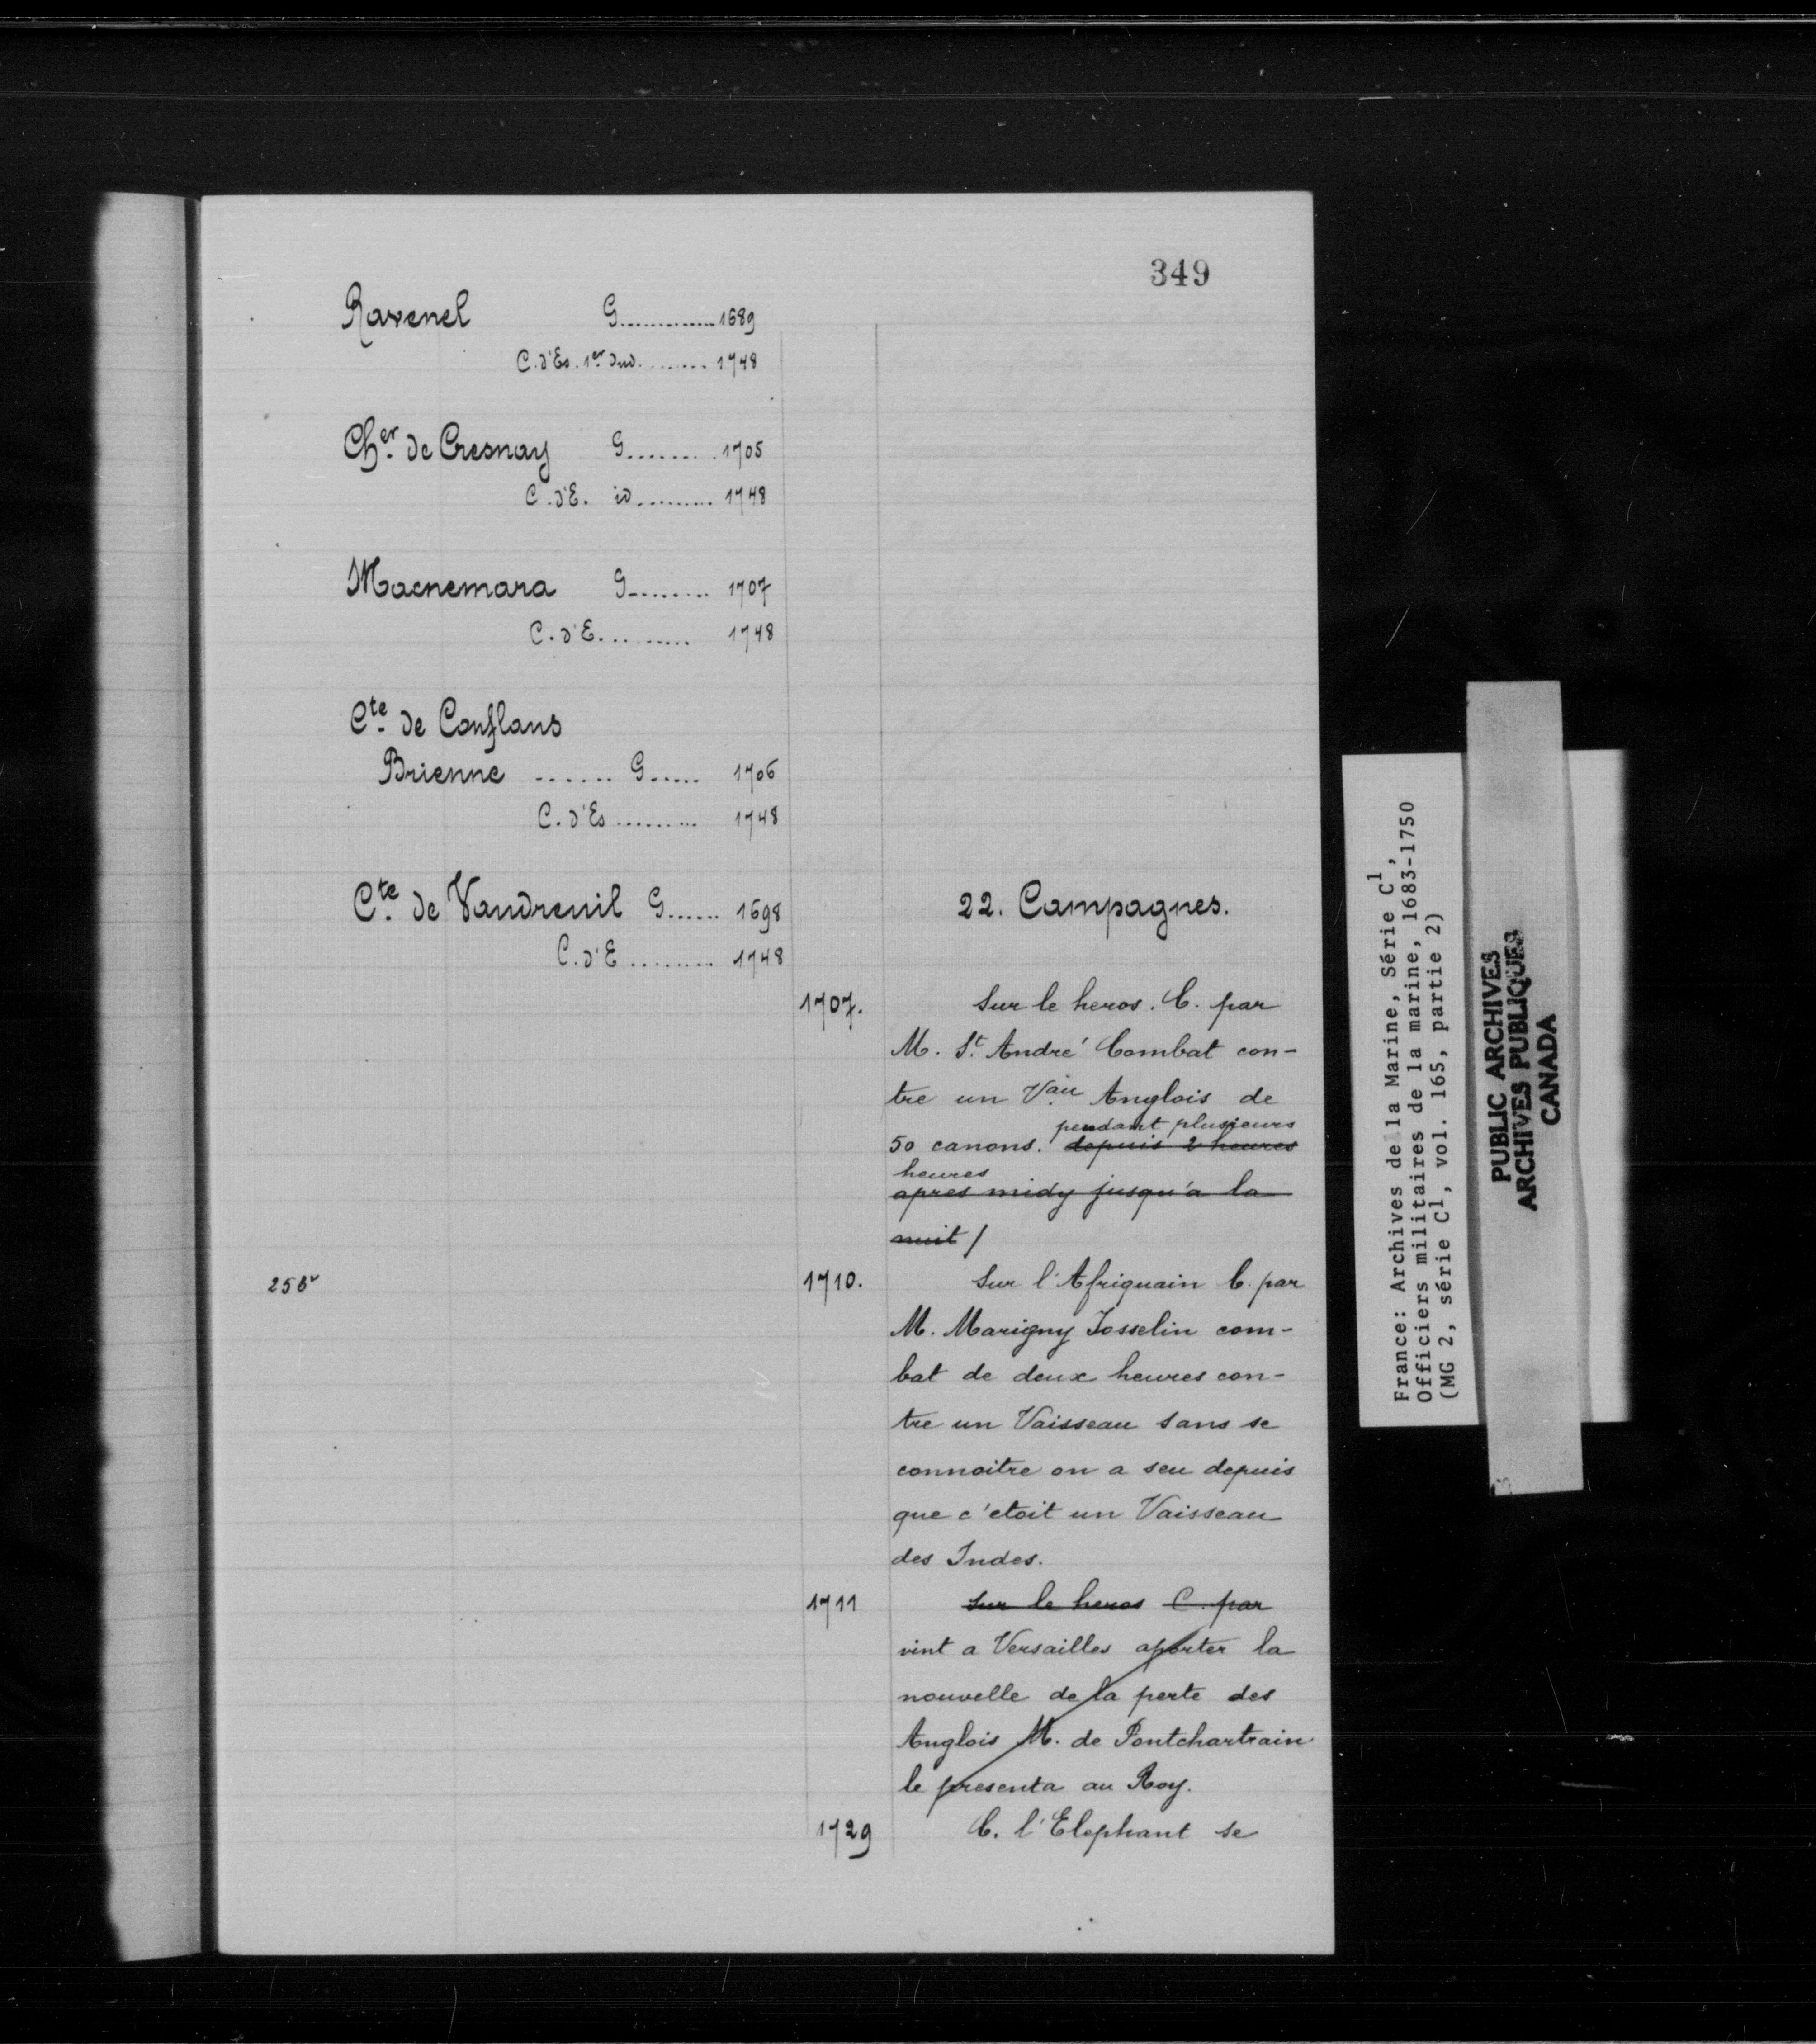 349
Ravenel G..............1689
C. d'Es. 1er Ind.........1748
Cher. de Cresnay G.........1705
C. d'E. id..........1748
Macnemara G.........1707
C. d'E..........1748
Cte. de Conflans
Brienne .......G......1706
C. d'Es .........1748
Cte. de Vaudreuil G......1698
C. d'E .........1748
22. Campagnes.
1707. Sur le heros. C. par
M. St. André Combat con-
tre un Vau. Anglois de
pendant plusieurs
50 canons. depuis 2 heures
heures
apres midy jusqu'a la
nuit /
1710. Sur l'Afriquain C. par
M. Marigny Josselin com-
bat de deux heures con-
tre un Vaisseau sans se
connoitre on a seu depuis
que c'etoit un Vaisseau
des Indes.
1711 Sur le heros C. par
vint a Versailles aporter la
nouvelle de la perte des
Anglois M. de Pontchartrain
le presenta au Roy.
1729 C. l'Elephant se
France: Archives de la Marine, Série C1,
Officiers militaires de la marine, 1683-1750
(MG 2, série C1, vol. 165, partie 2)
PUBLIC ARCHIVES
ARCHIVES PUBLIQUES
CANADA